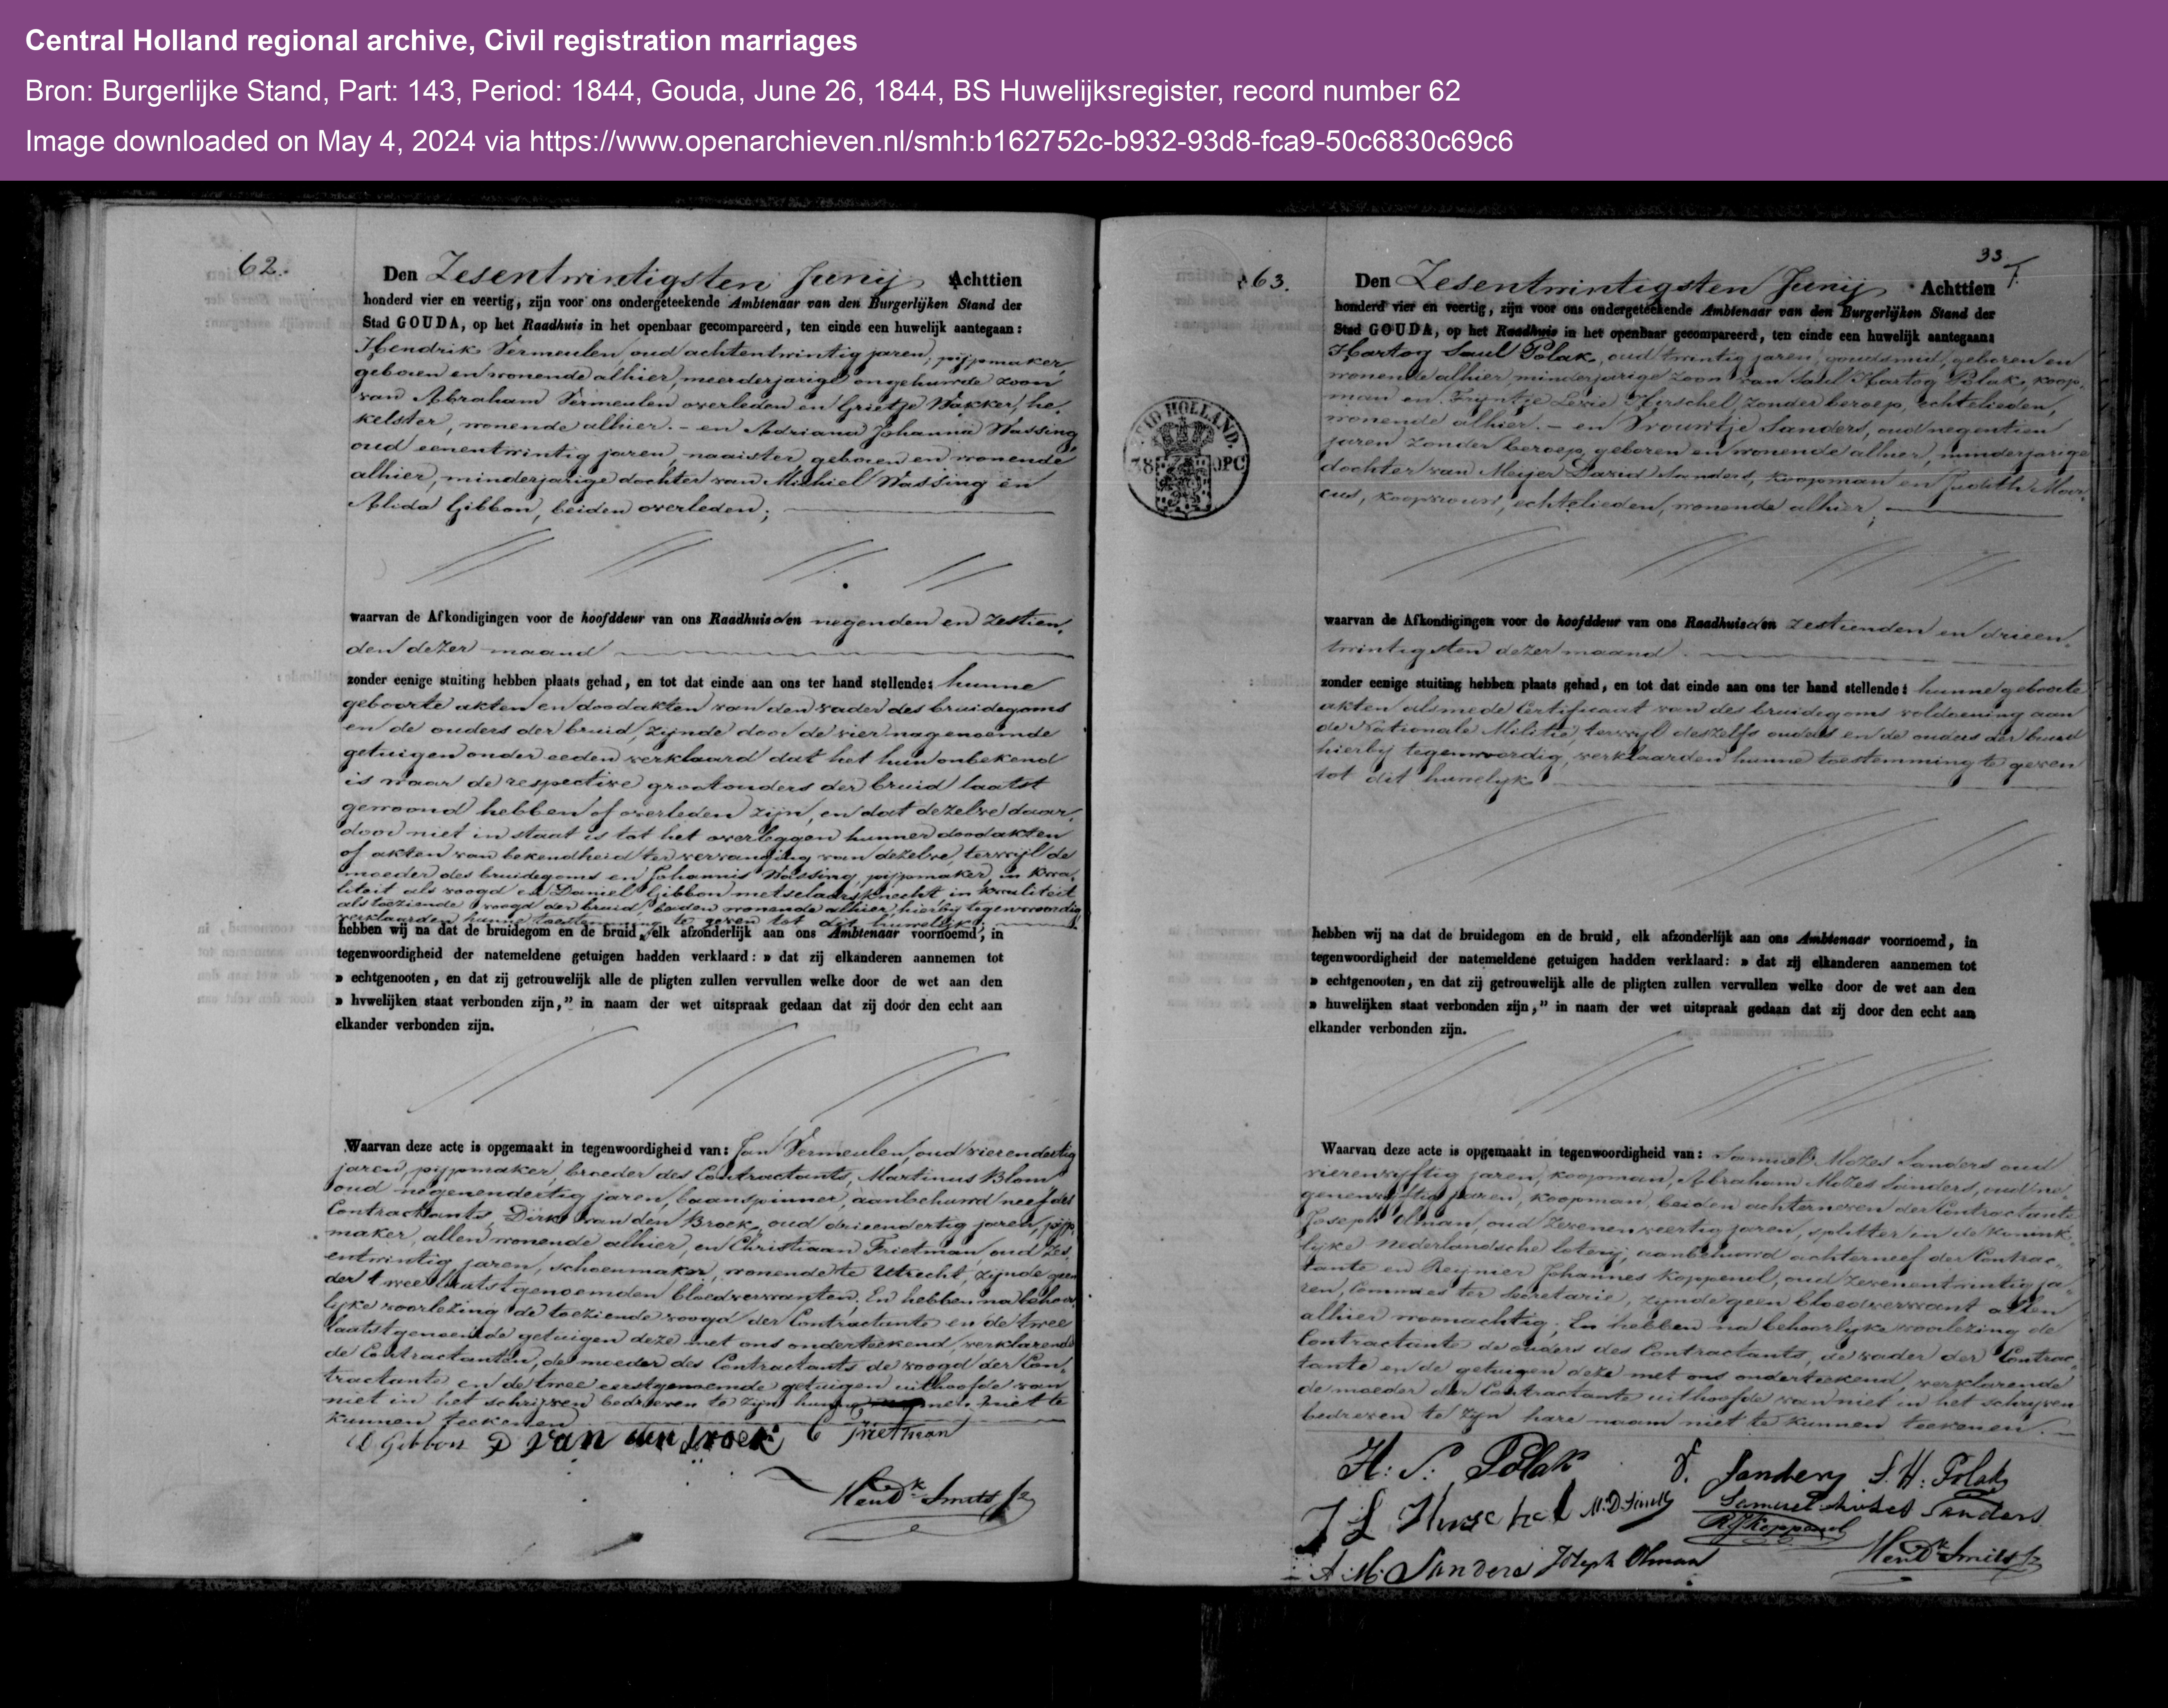 Central Holland regional archive, Civil registration marriages
Bron: Burgerlijke Stand, Part: 143, Period: 1844, Gouda, June 26, 1844, BS Huwelijksregister, record number 62
Image downloaded on May 4, 2024 via https://www.openarchieven.nl/smh:b162752c-b932-93d8-fca9-50c6830c69c6
62.
Den Zesentwintigsten Junij Achttien
honderd vier en veertig, zijn voor ons ondergeteekende Ambtenaar van den Burgerlijken Stand der
Stad GOUDA, op het Raadhuis in het openbaar gecompareerd, ten einde een huwelijk aantegaan:
Hendrik Vermeulen, oud achtentwintig jaren, pijpmaker,
geboren en wonende alhier, meerderjarige ongehuwde zoon
van Abraham Vermeulen overleden en Grietje Wakker, he-
kelster, wonende alhier. - en Adriana Johanna Wassing,
oud eenentwintig jaren, naaister, geboren en wonende
alhier, minderjarige dochter van Michiel Wassing en
Alida Gibbon, beiden overleden;
waarvan de Afkondigingen voor de hoofddeur van ons Raadhuis den negenden en zestien-
den dezer maand
zonder eenige stuiting hebben plaats gehad, en tot dat einde aan ons ter hand stellende: hunne
geboorte akten en doodakten van den vader des bruidegoms
en de ouders der bruid, zijnde door de vier nagenoemde
getuigen onder eeden verklaard dat het hun onbekend
is waar de respective grootouders der bruid laatst
gewoond hebben of overleden zijn, en dat dezelve daar-
door niet in staat is tot het overleggen hunner doodakten
of akten van bekendheid ter vervanging van dezelve, terwijl de
moeder des bruidegoms en Johannis Wassing, pijpmaker, in kwa-
liteit als voogd en Daniel Gibbon metselaarsknecht in kwaliteit
als toeziende voogd der bruid, beiden wonende alhier, hierbij tegenwoordig
verklaarden hunne toestemming te geven tot dit huwelijk;
hebben wij na dat de bruidegom en de bruid, elk afzonderlijk aan ons Ambtenaar voornoemd, in
tegenwoordigheid der natemeldene getuigen hadden verklaard: » dat zij elkanderen aannemen tot
» echtgenooten, en dat zij getrouwelijk alle de pligten zullen vervullen welke door de wet aan den
» hvwelijken staat verbonden zijn,” in naam der wet uitspraak gedaan dat zij door den echt aan
elkander verbonden zijn.
Waarvan deze acte is opgemaakt in tegenwoordigheid van: Jan Vermeulen, oud vierendertig
jaren, pijpmaker, broeder des Contractants, Martinus Blom
oud negenendertig jaren, baanspinner, aanbehuwd neef des
Contractants, Dirk van den Broek, oud drieendertig jaren, pijp-
maker, allen wonende alhier, en Christiaan Frietman, oud zes-
entwintig jaren, schoenmaker, wonende te Utrecht, zijnde geen
der twee laatstgenoemden bloedverwanten. En hebben na behoor-
lijke voorlezing de toeziende voogd der Contractante en de twee
laatstgenoemde getuigen deze met ons onderteekend, verklarende
de Contractanten, de moeder des Contractants de voogd der Con-
tractante en de twee eerstgenoemde getuigen uithoofde van
niet in het schrijven bedreven te zijn hunne namen niet te
kunnen teekenen
D Gibbon D van den Broek C Frietman
Hendk Smits Jz
33
63.
ZUID HOLLAND.
38 OPC
Den Zesentwintigsten Junij Achttien
honderd vier en veertig, zijn voor ons ondergeteekende Ambtenaar van den Burgerlijken Stand der
Stad GOUDA, op het Raadhuis in het openbaar gecompareerd, ten einde een huwelijk aantegaan:
Hartog Saul Polak, oud twintig jaren, goudsmid, geboren en
wonende alhier, minderjarige zoon van Saul Hartog Polak, koop-
man en Trijntje Levie Hirschel, zonder beroep, echtelieden,
wonende alhier. - en Vrouwtje Sanders, oud negentien
jaren zonder beroep, geboren en wonende alhier, minderjarige
dochter van Meijer David Sanders, koopman en Judith Mar-
cus, koopvrouw, echtelieden, wonende alhier;
waarvan de Afkondigingen voor de hoofddeur van ons Raadhuis den zestienden en drieen-
twintigsten dezer maand
zonder eenige stuiting hebben plaats gehad, en tot dat einde aan ons ter hand stellende: hunne geboorte
akten alsmede Certificaat van des bruidegoms voldoening aan
de Nationale Militie, terwijl deszelfs ouders en de ouders der bruid
hierbij tegenwoordig, verklaarden hunne toestemming te geven
tot dit huwelijk
hebben wij na dat de bruidegom en de bruid, elk afzonderlijk aan ons Ambtenaar voornoemd, in
tegenwoordigheid der natemeldene getuigen hadden verklaard: » dat zij elkanderen aannemen tot
» echtgenooten, en dat zij getrouwelijk alle de pligten zullen vervullen welke door de wet aan den
» huwelijken staat verbonden zijn,” in naam der wet uitspraak gedaan dat zij door den echt aan
elkander verbonden zijn.
Waarvan deze acte is opgemaakt in tegenwoordigheid van: Samuel Mozes Sanders oud
vierenvijftig jaren, koopman, Abraham Mozes Sanders, oud ne-
genenvijftig jaren, koopman, beiden achterneven der Contractante
Joseph Olman, oud zevenenveertig jaren, splitter in de konink-
lijke Nederlandsche loterij, aanbehuwd achterneef der Contrac-
tante en Reijnier Johannes Koppenol, oud zevenentwintig ja-
ren, Commies ter Secretarie, zijnde geen bloedverwant allen
alhier woonachtig; En hebben na behoorlijke voorlezing de
Contractante de ouders des Contractants, de vader der Contrac-
tante en de getuigen deze met ons onderteekend, verklarende
de moeder der Contractante uithoofde van niet in het schrijven
bedreven te zijn hare naam niet te kunnen teekenen.
H: S: Polak V. Sanders S. H: Polak
T L Hirschel M. D. Sanders Samuel Moses Sanders
RJ Koppenol
A M: Sanders Joseph Olman Hendk Smits Jz